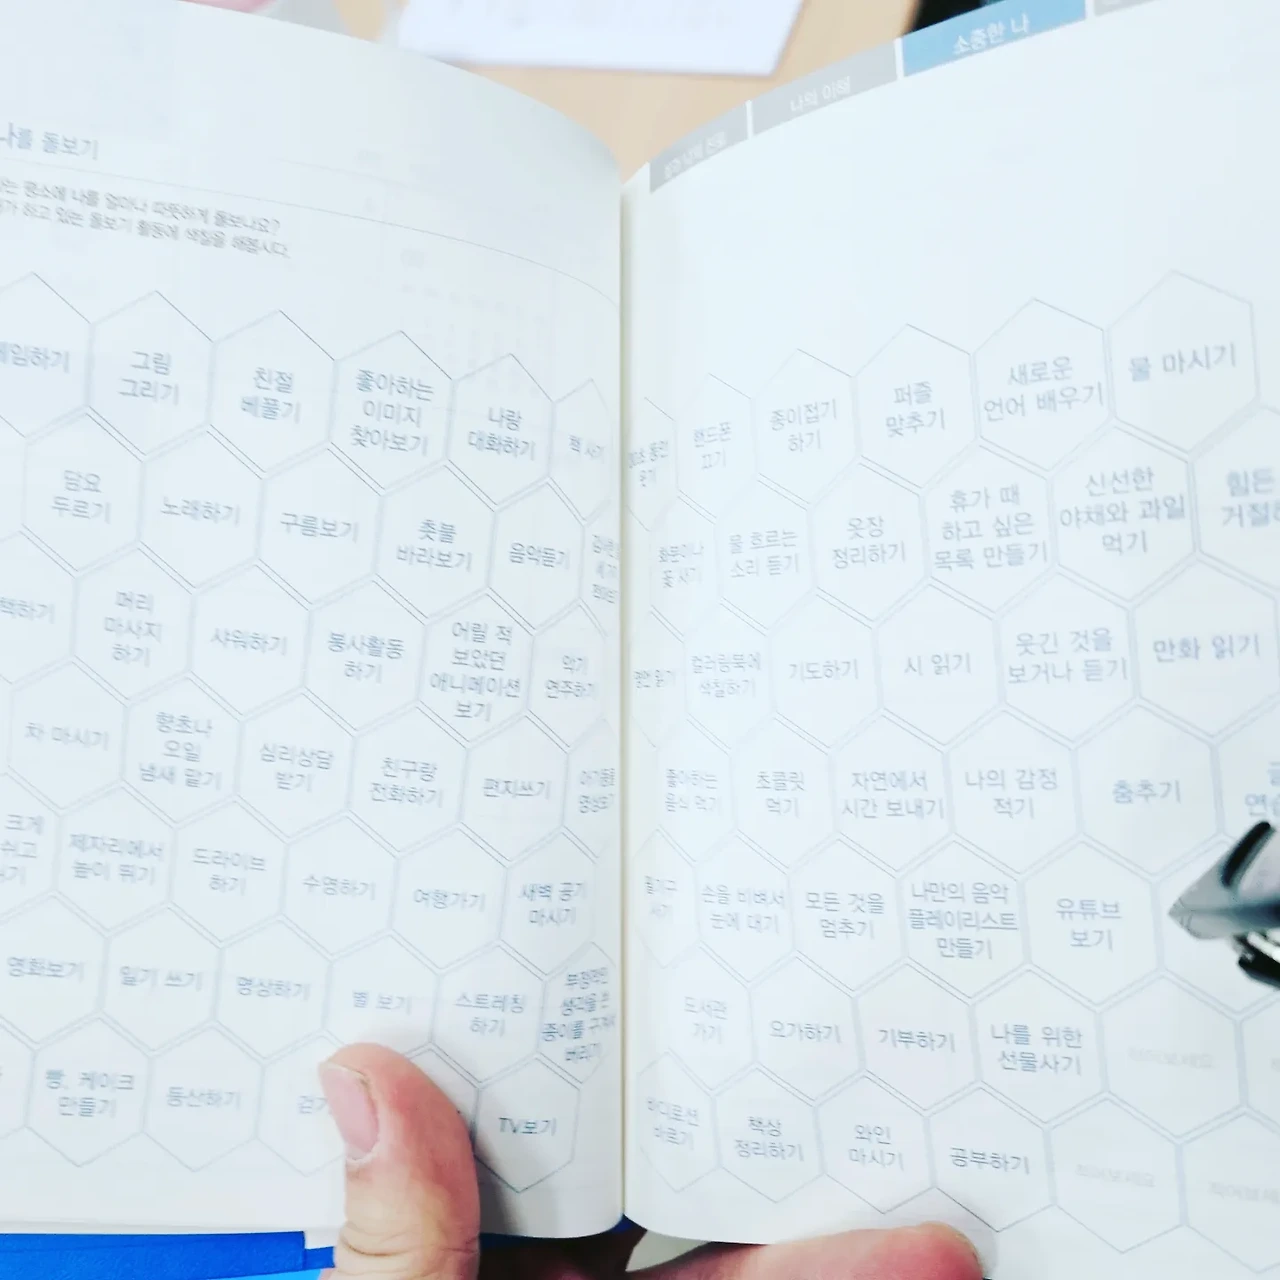 소중한 나
나의 이해
나를 돌보기
평소에 나를 얼마나 따뜻하게 돌보나요?
하고 있는 돌보기 활동에 색칠을 해봅시다.
그림
그리기
친절
베풀기
좋아하는
이미지
찾아보기
나랑
대화하기
책 사기
담요
두르기
노래하기
구름보기
촛불
바라보기
음악듣기
머리
마사지
하기
샤워하기
봉사활동
하기
어릴 적
보았던
애니메이션
보기
악기
연주하기
차 마시기
향초나
오일
냄새 맡기
심리상담
받기
친구랑
전화하기
편지쓰기
크게
쉬고
제자리에서
높이 뛰기
드라이브
하기
수영하기
여행가기
새벽 공기
마시기
영화보기
일기 쓰기
명상하기
별 보기
스트레칭
하기
부정적인
생각을 쓴
종이를 구겨서
버리기
빵, 케이크
만들기
등산하기
TV보기
핸드폰
끄기
종이접기
하기
퍼즐
맞추기
새로운
언어 배우기
물 마시기
화분이나
꽃 사기
물 흐르는
소리 듣기
옷장
정리하기
휴가 때
하고 싶은
목록 만들기
신선한
야채와 과일
먹기
힘든
컬러링북에
색칠하기
기도하기
시 읽기
웃긴 것을
보거나 듣기
만화 읽기
좋아하는
음식 먹기
초콜릿
먹기
자연에서
시간 보내기
나의 감정
적기
춤추기
손을 비벼서
눈에 대기
모든 것을
멈추기
나만의 음악
플레이리스트
만들기
유튜브
보기
도서관
가기
요가하기
기부하기
나를 위한
선물사기
적어보세요
바르기
책상
정리하기
와인
마시기
공부하기
적어보세요